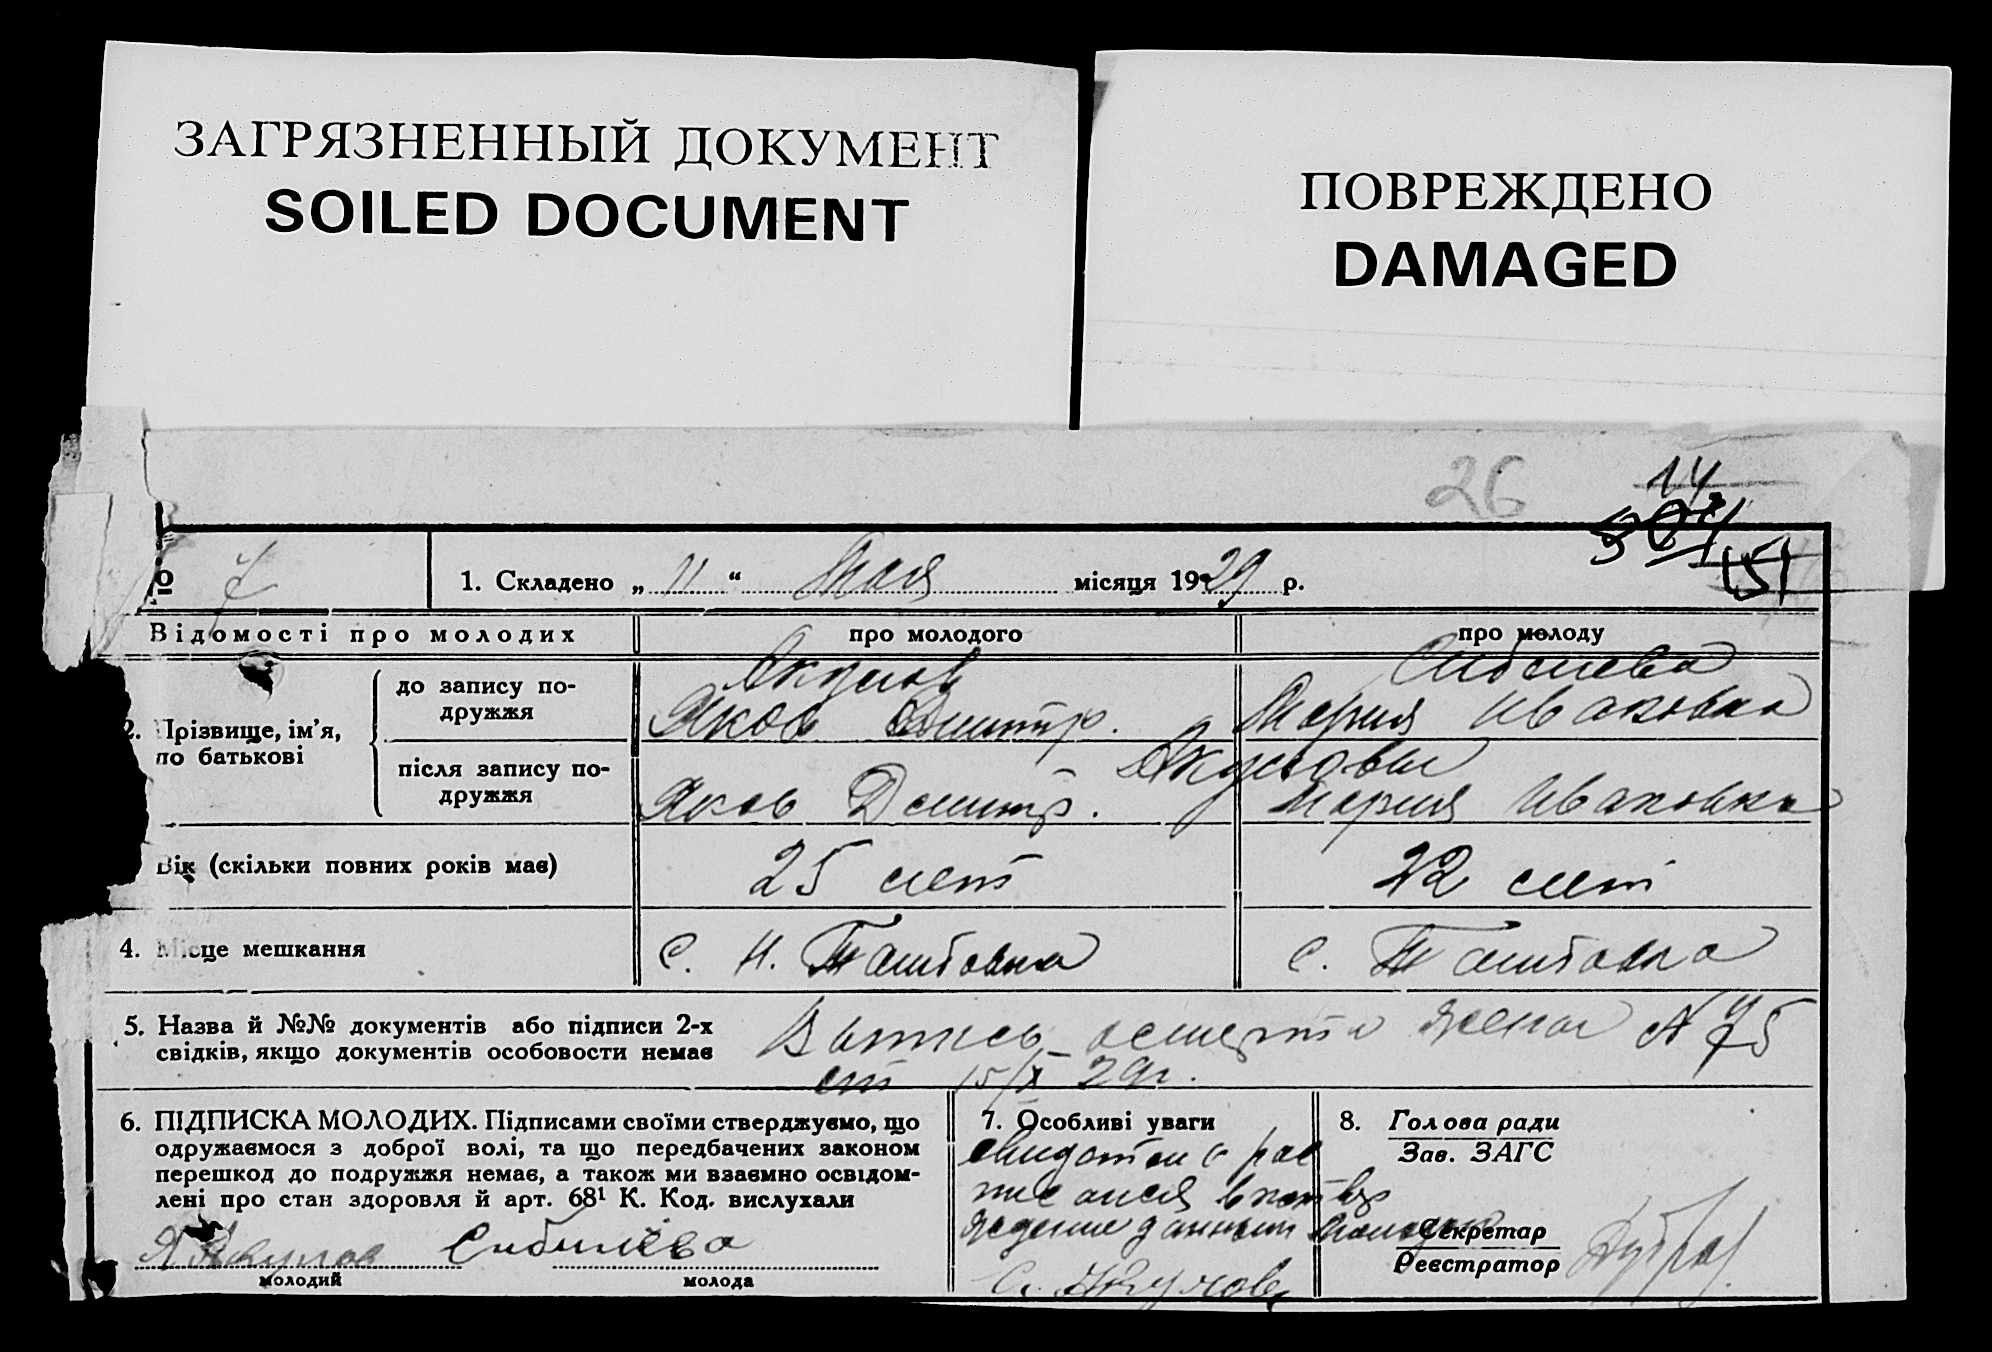 ЗАГРЯЗНЕННЫЙ ДОКУМЕНТ
SOILED DOCUMENT
ПОВРЕЖДЕНО
DAMAGED
26
14
151
№ 7
1. Складено „ 11 “ Мая місяця 1929 р.
Відомості про молодих
про молодого
про молоду
2. Прізвище, ім’я, по батькові
до запису по-
дружжя
Акулов
Яков Дмитр.
Сибилева
Мария Ивановна
після запису по-
дружжя
Акуловы
Яков Дмитр.
Мария Ивановна
Вік (скільки повних років має)
25 лет
22 лет
4. Місце мешкання
с. Н. Ташбовка
с. Ташбовка
5. Назва й №№ документів або підписи 2-х
свідків, якщо документів особовости немає
Выпись о смерти жены № 75
от 15/X 29г.
6. ПІДПИСКА МОЛОДИХ. Підписами своїми стверджуємо, що
одружаємося з доброї волі, та що передбачених законом
перешкод до подружжя немає, а також ми взаємно освідом-
лені про стан здоровля й арт. 68¹ К. Код. вислухали
Я Акулов Сибилёва
молодий
молода
7. Особливі уваги
Акулов
8. Голова ради
Зав. ЗАГС
Секретар
Реєстратор